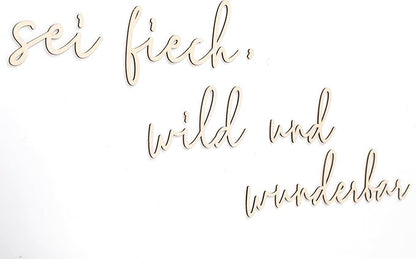 sei fiech.
wild und
wunderbar